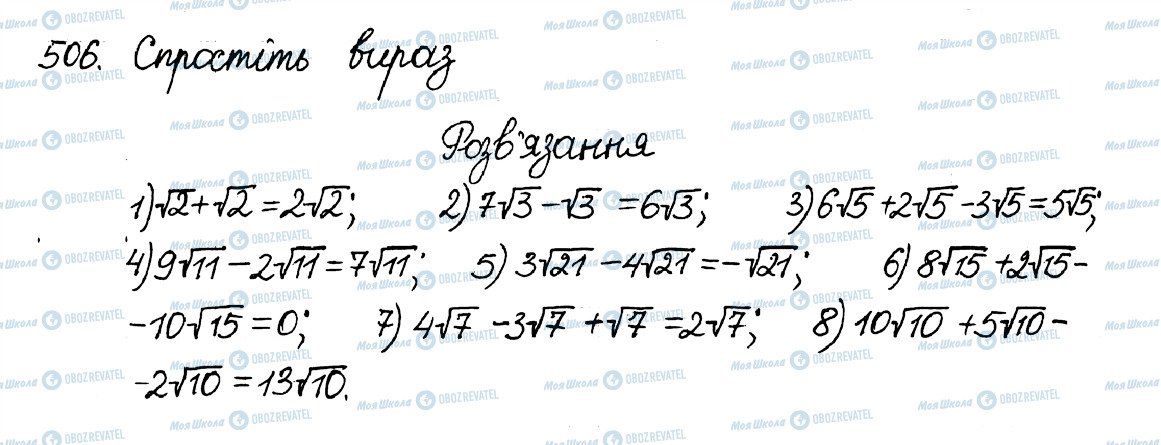 506. Спростіть вираз
Розв'язання
1) √2 + √2 = 2√2; 2) 7√3 - √3 = 6√3; 3) 6√5 + 2√5 - 3√5 = 5√5;
4) 9√11 - 2√11 = 7√11; 5) 3√21 - 4√21 = -√21; 6) 8√15 + 2√15 -
- 10√15 = 0; 7) 4√7 - 3√7 + √7 = 2√7; 8) 10√10 + 5√10 -
- 2√10 = 13√10.